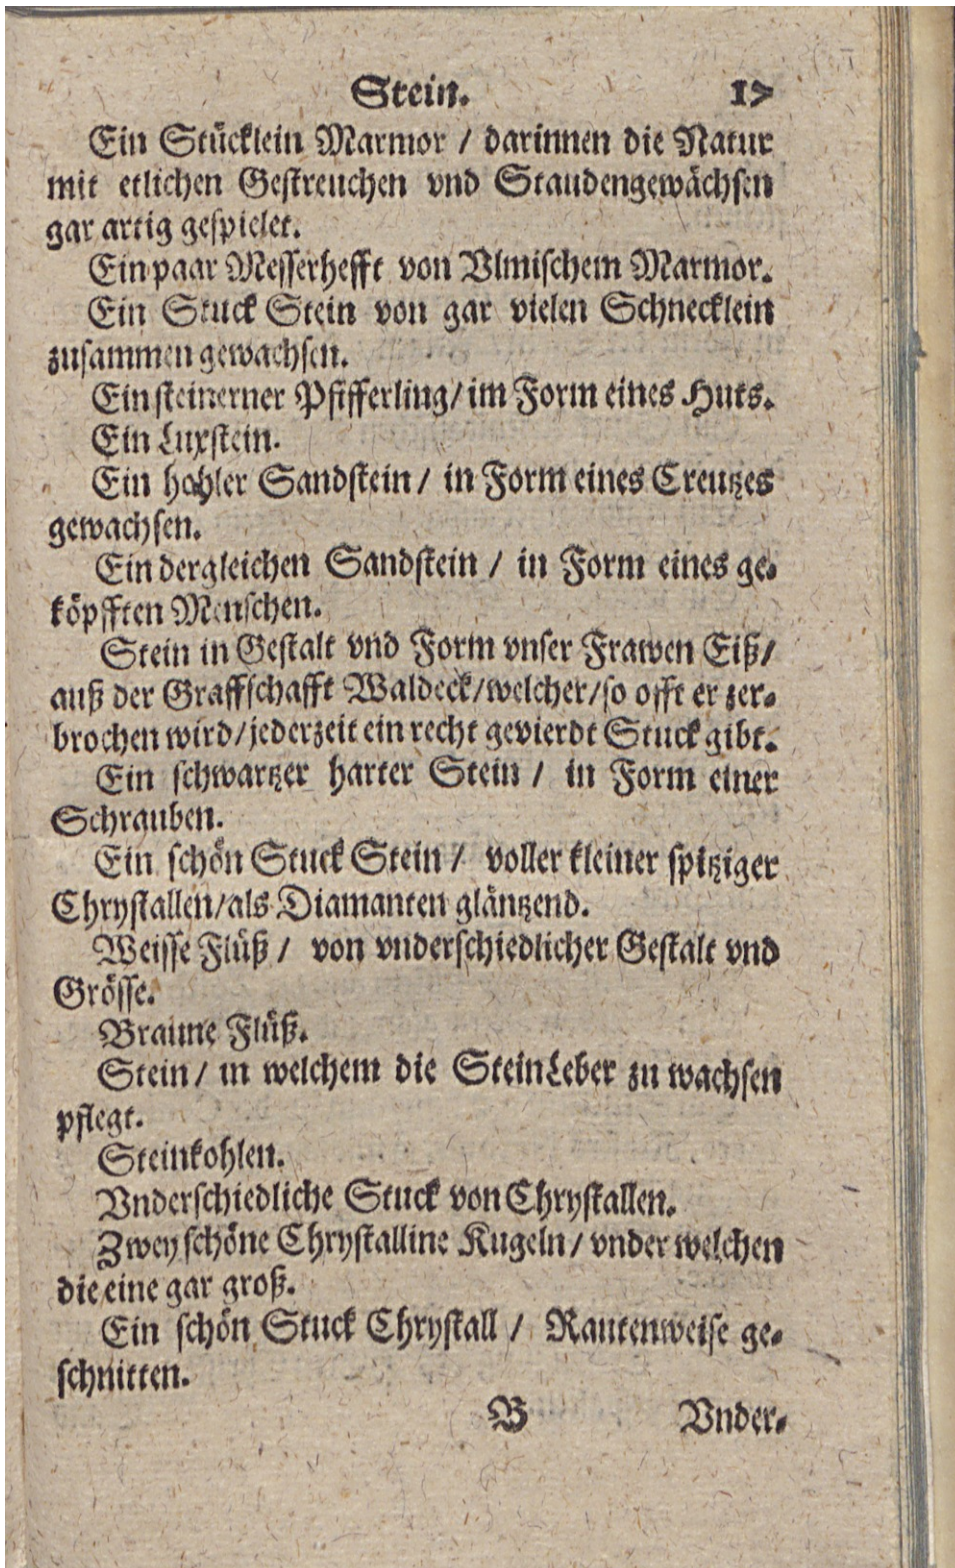 Stein. 17
Ein Stücklein Marmor / darinnen die Natur
mit etlichen Gestreuchen vnd Staudengewächsen
gar artig gespielet.
Ein paar Messerhefft von Vlmischem Marmor.
Ein Stuck Stein von gar vielen Schnecklein
zusammen gewachsen.
Ein steinerner Pfifferling / im Form eines Huts.
Ein Luxstein.
Ein hohler Sandstein / in Form eines Creutzes
gewachsen.
Ein dergleichen Sandstein / in Form eines ge-
köpfften Menschen.
Stein in Gestalt vnd Form vnser Frawen Eiß /
auß der Graffschafft Waldeck / welcher / so offt er zer-
brochen wird / jederzeit ein recht gevierdt Stuck gibt.
Ein schwartzer harter Stein / in Form einer
Schrauben.
Ein schön Stuck Stein / voller kleiner spitziger
Chrystallen / als Diamanten gläntzend.
Weisse Flüß / von vnderschiedlicher Gestalt vnd
Grösse.
Braune Flüß.
Stein / in welchem die SteinLeber zu wachsen
pflegt.
Steinkohlen.
Vnderschiedliche Stuck von Chrystallen.
Zwey schöne Chrystalline Kugeln / vnder welchen
die eine gar groß.
Ein schön Stuck Chrystall / Rautenweise ge-
schnitten.
B Vnder-